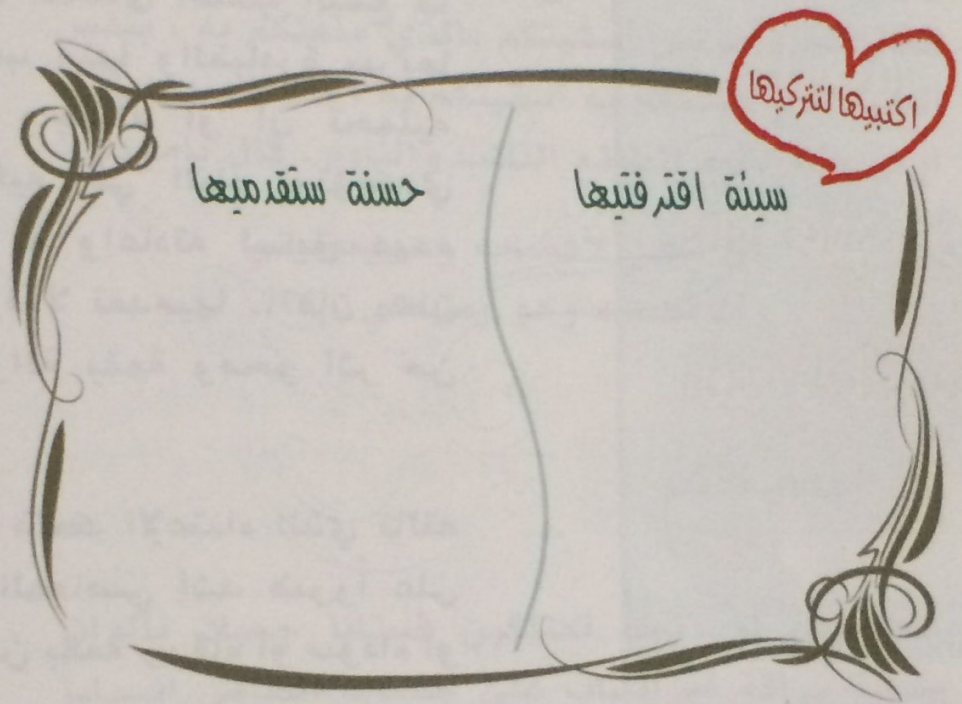 اكتبيها لتتركيها
سيئة اقترفتيها
حسنة ستقدميها